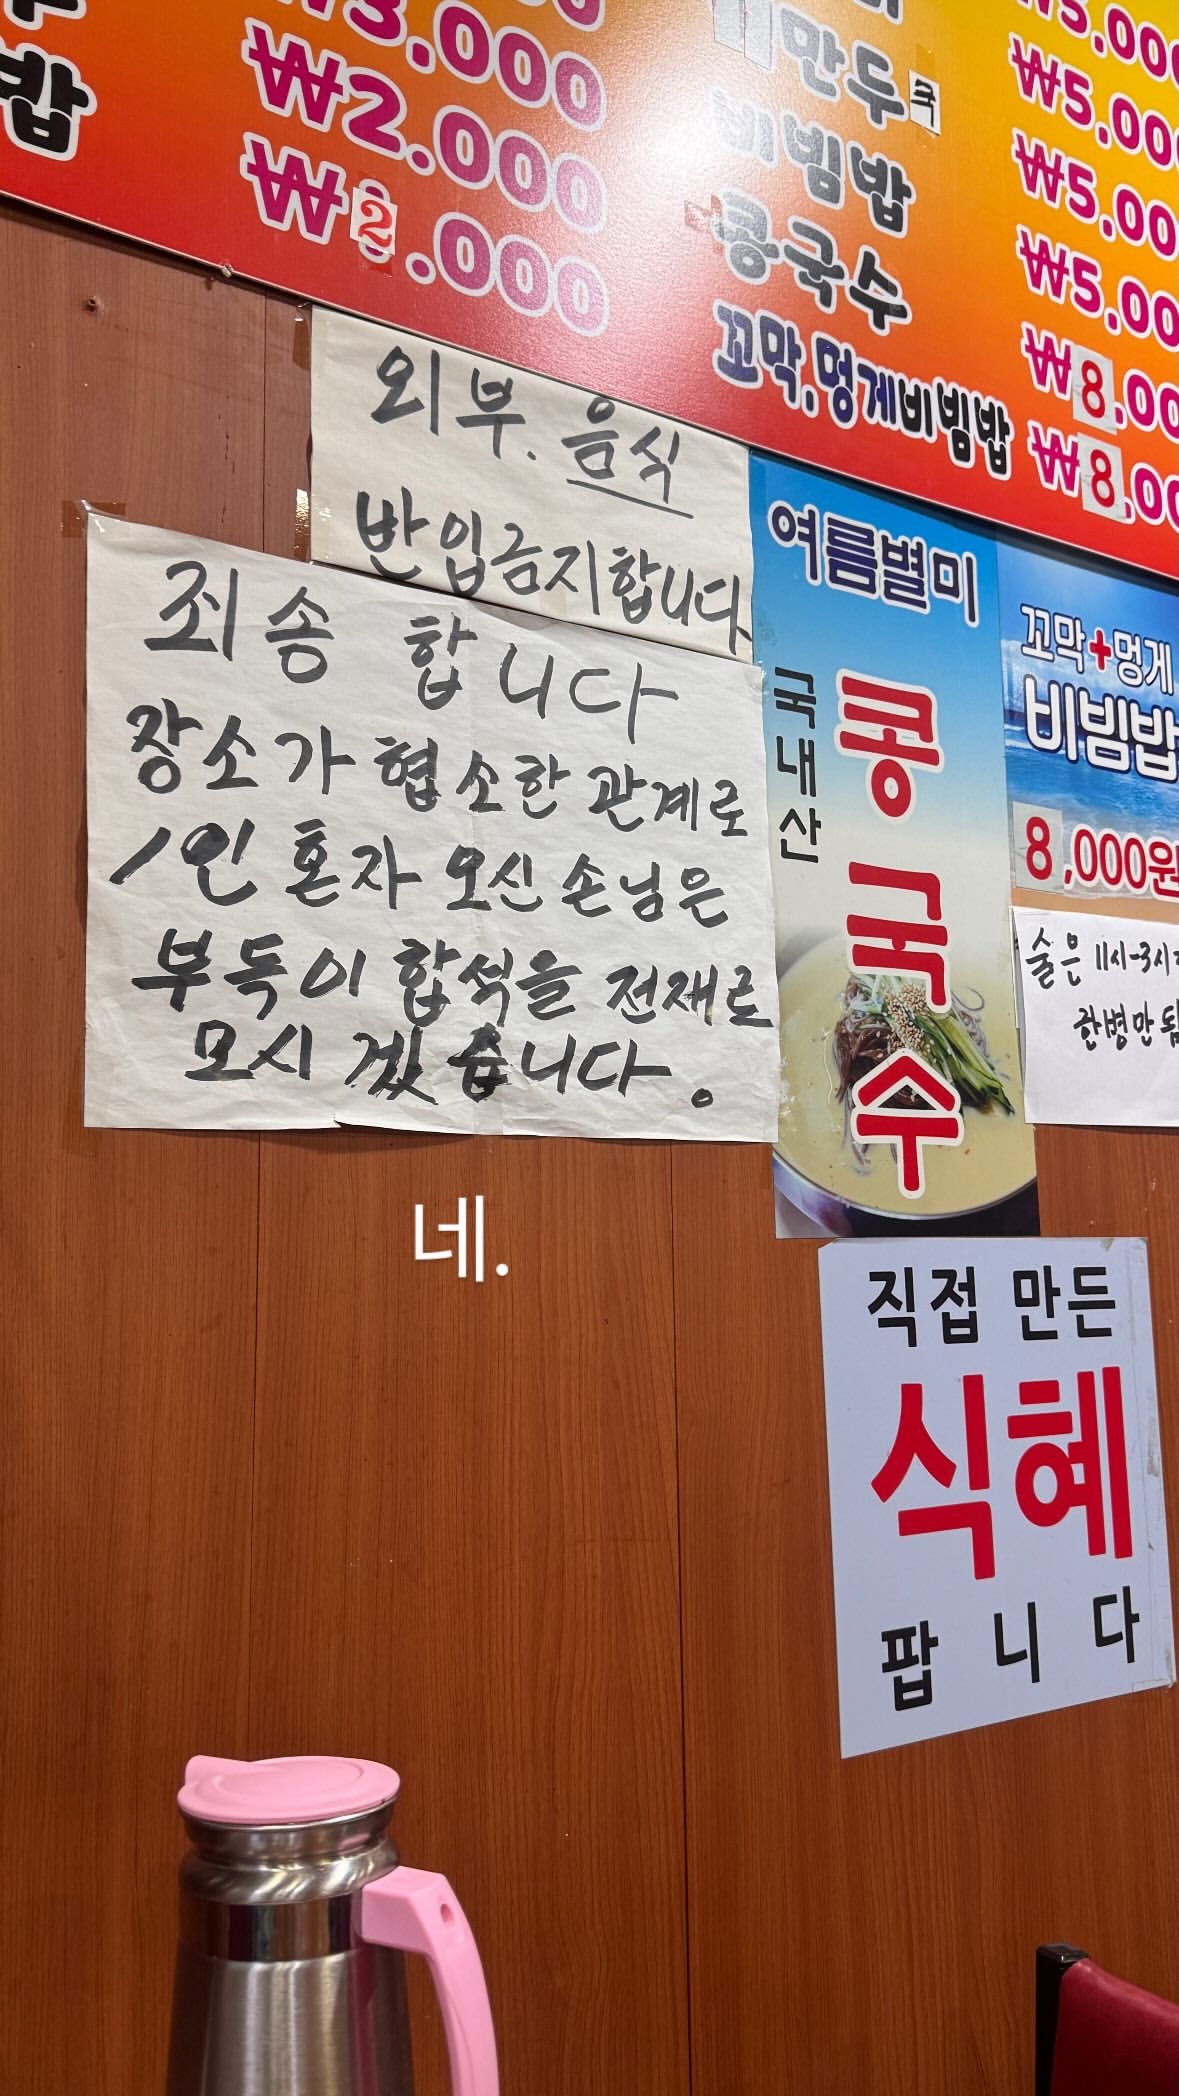 밥
₩3.000
₩2.000
₩2.000
만두국
비빔밥
콩국수
꼬막.멍게비빔밥
₩5.00
₩5.00
₩5.00
₩8.00
₩8.00
외부.음식
반입금지합니다
죄송 합니다
장소가 협소한 관계로
1인 혼자 오신 손님은
부득이 합석을 전재로
모시겠습니다.
네.
여름별미
국내산
콩국수
꼬막+멍게
비빔밥
8,000원
술은 11시-3시
한병만
직접 만든
식혜
팝니다